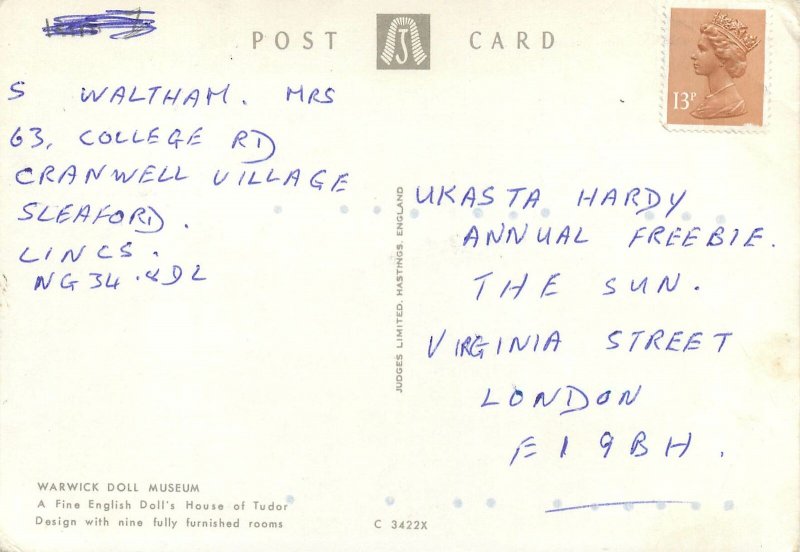 POST CARD
J
13P
S WALTHAM. MRS
63, COLLEGE RD
CRANWELL VILLAGE
SLEAFORD.
LINCS.
NG34 8DL
UKASTA HARDY
ANNUAL FREEBIE.
THE SUN.
VIRGINIA STREET
LONDON
E1 9BH.
JUDGES LIMITED, HASTINGS, ENGLAND
WARWICK DOLL MUSEUM
A Fine English Doll's House of Tudor
Design with nine fully furnished rooms
C 3422X